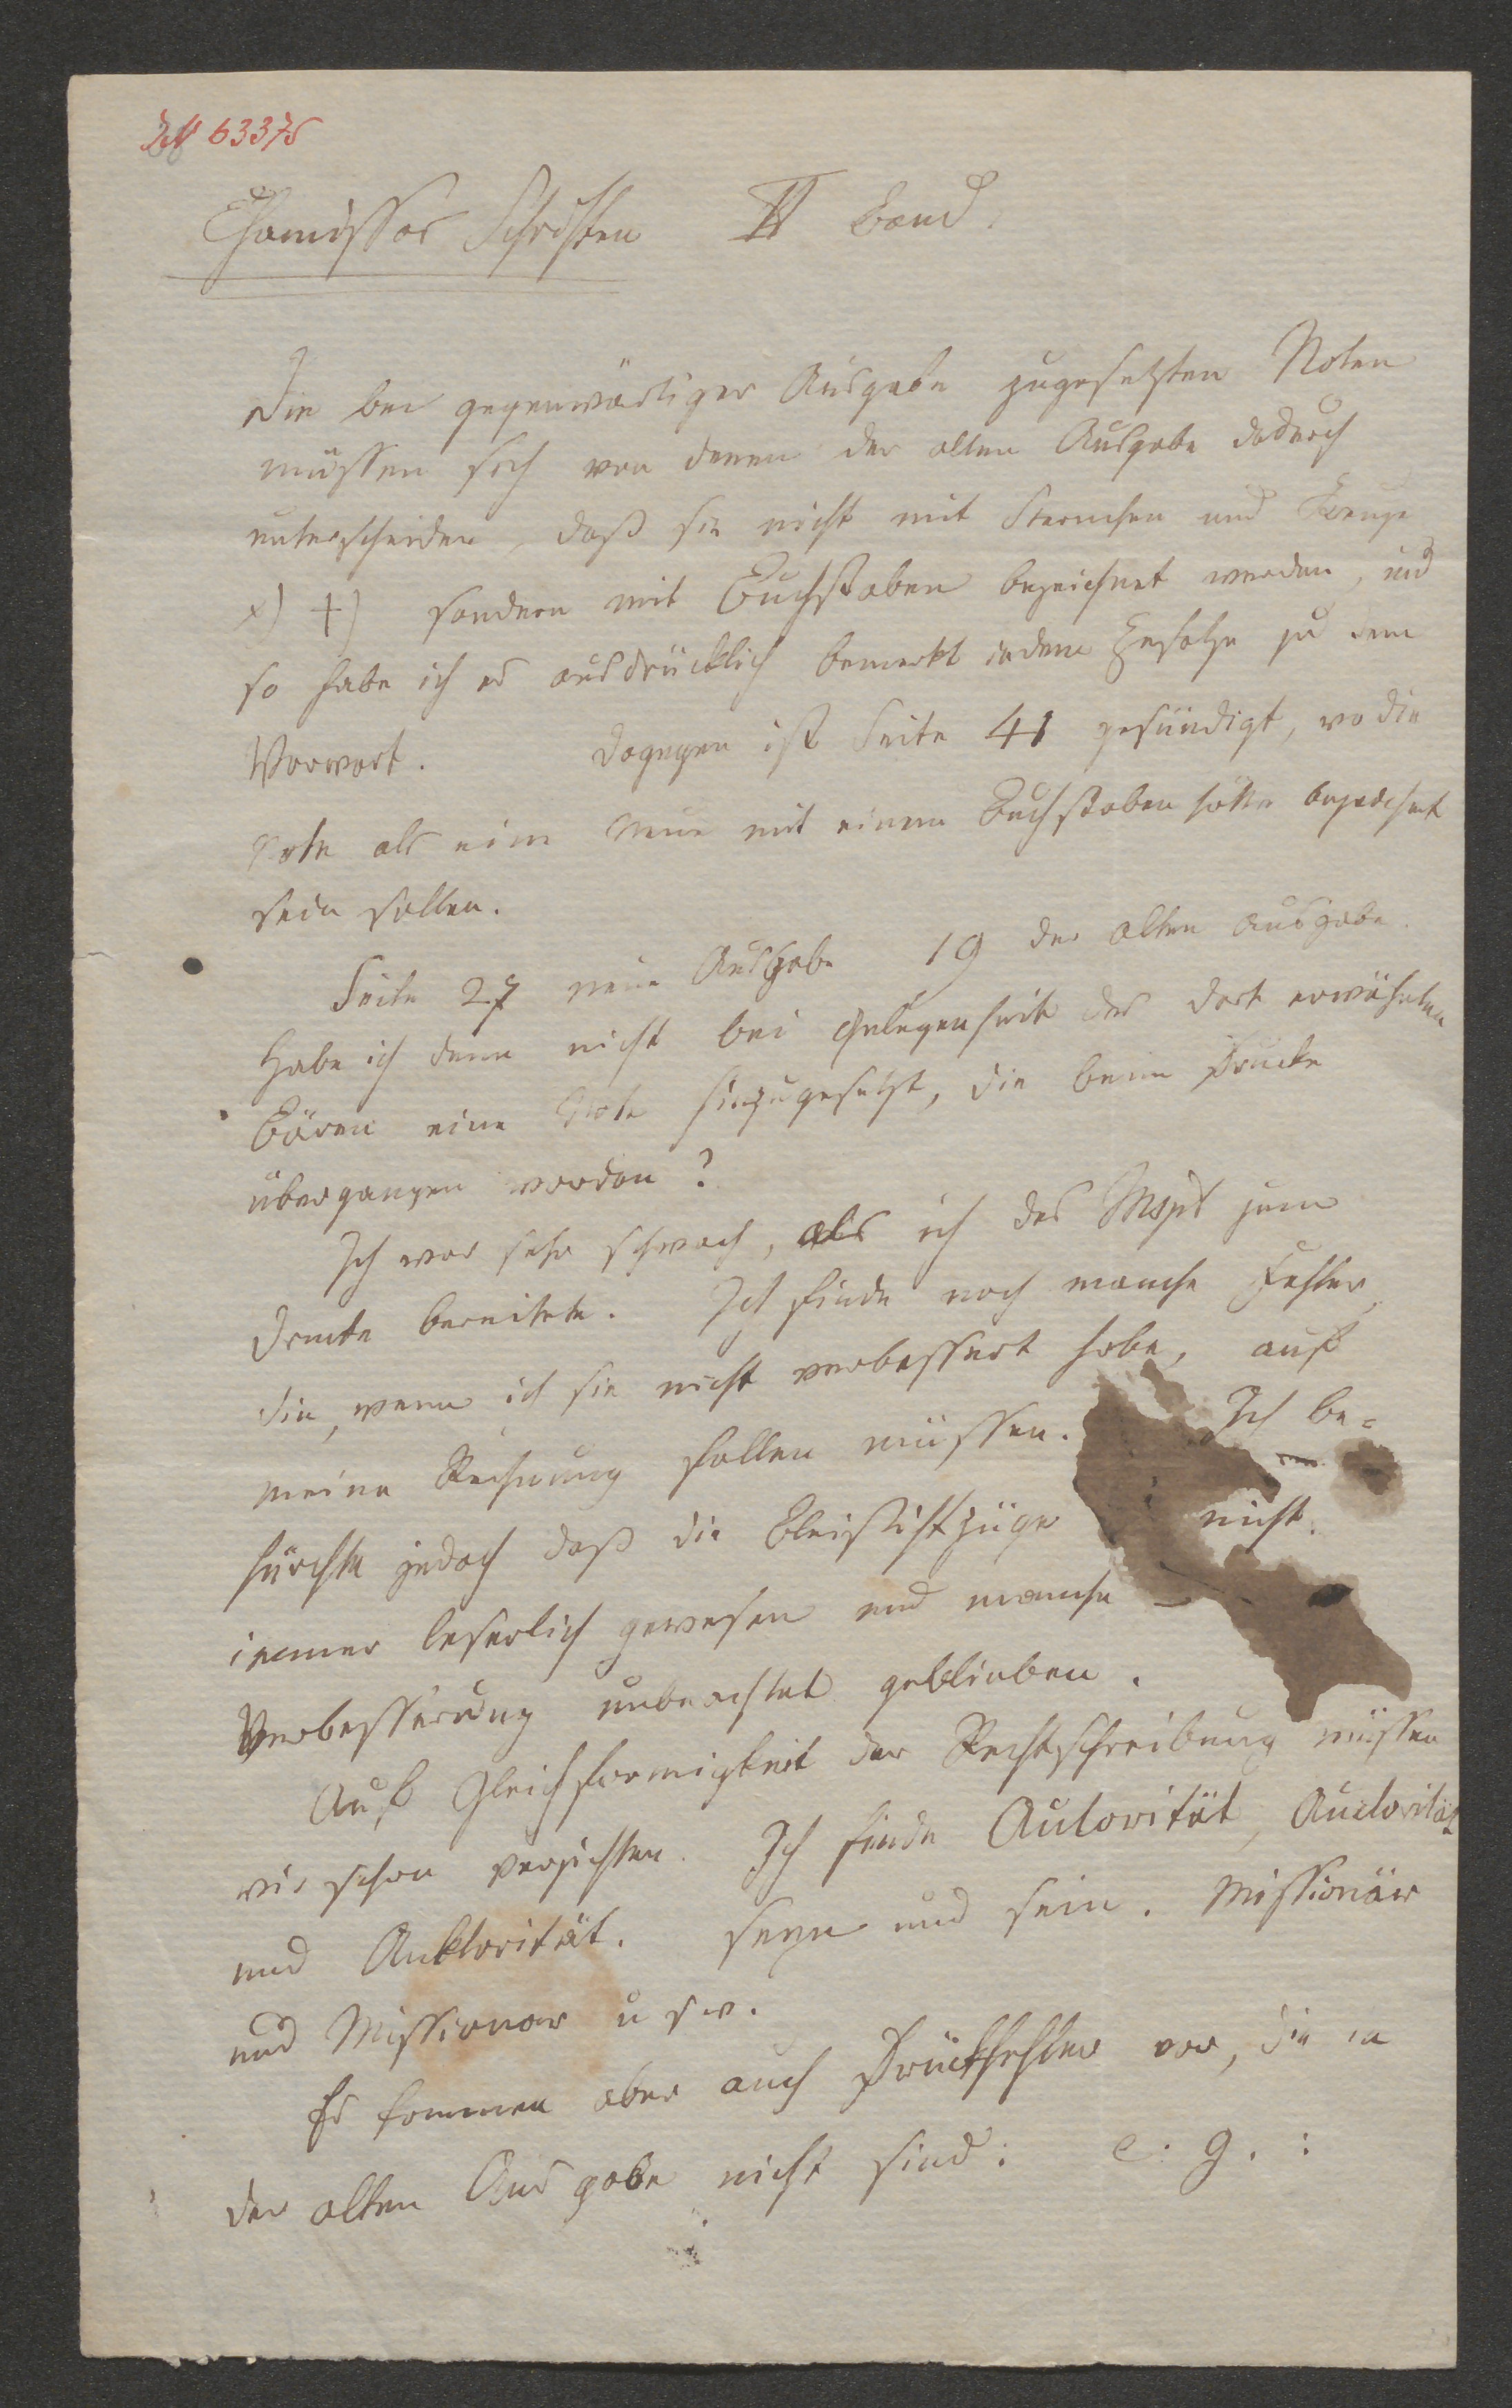 63375
Chamissos Schriften II Band.
Die bei gegenwärtiger Ausgabe zugesetzten Noten
müssen sich von denen der alten Ausgabe dadurch
unterscheiden, daß sie nicht mit Sternchen und Kreuze
*) +) sondern mit Buchstaben bezeichnet werden, und
so habe ich es ausdrücklich bemerkt in dem Zusatze zu dem
Vorwort. Dagegen ist Seite 41 gesündigt, wo die
Note als eine neue mit einem Buchstaben hätte bezeichnet
sein sollen.
Seite 27 neue Ausgabe 19 der alten Ausgabe.
Habe ich denn nicht bei Gelegenheit der dort erwähnten
Bären eine Note hinzugesetzt, die beim Drucke
übergangen worden?
Ich war sehr schwach, als ich das Mspt zum
Drucke bereitete. Ich finde noch manche Fehler,
die, wenn ich sie nicht verbessert habe, auf
meine Rechnung fallen müssen. Ich be=
fürchte jedoch daß die Bleistiftzüge nicht
immer leserlich gewesen und manche
Verbesserung unbeachtet geblieben.
Auf Gleichformigkeit der Rechtschreibung müssen
wir schon verzichten. Ich finde Autorität, Auctorität
und Auktorität. seyn und sein. Missionär
und Missionar u s w.
Es kommen aber auch Druckfehler vor, die in
der alten Ausgabe nicht sind: e. g. :